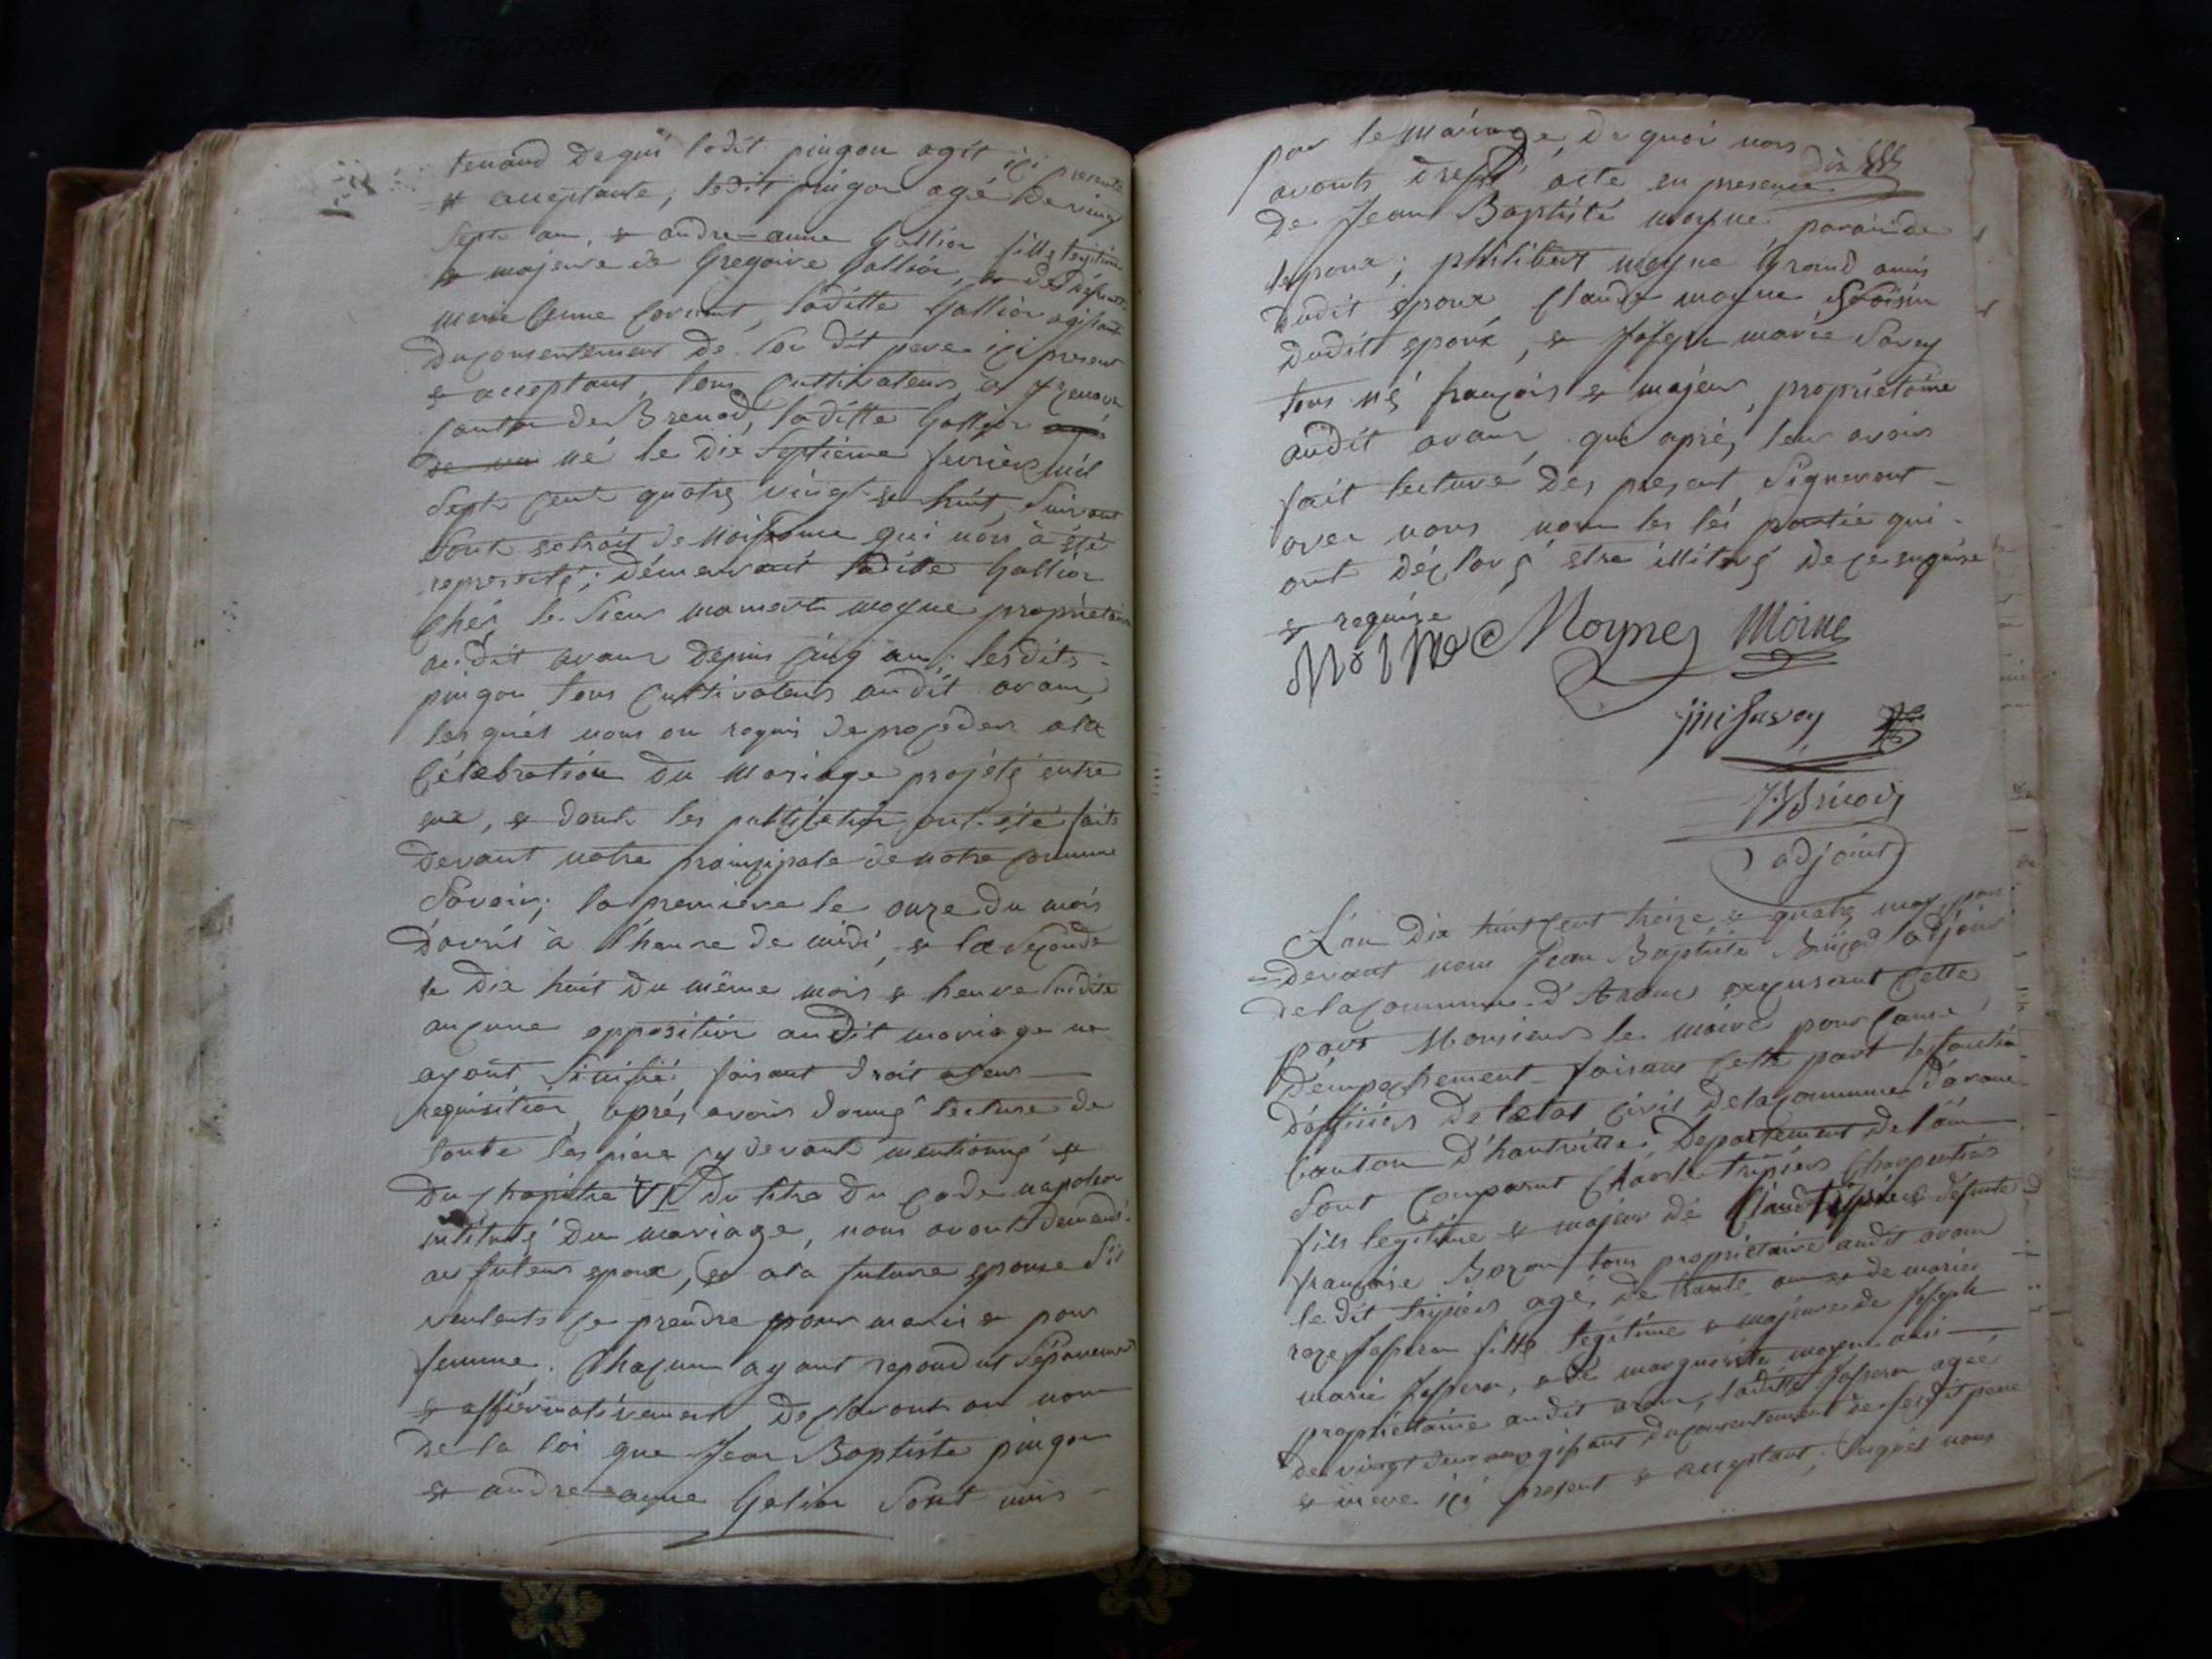 tenand de qui ledit pingon agit ici presente
& acceptante, ledit pingon agé de vingt
sept an, & andre-anne Gallion fille legitime
& majeure de Gregoire Gallion, & de défunte
marie anne, laditte Gallion agissant
du consentement de son dit pere ici present
& acceptant, tous cultivateurs a
canton de Brenod, laditte Gallion agé
de né le dix septieme fevrier mil
sept cent quatre vingt & huit, suivant
sont extrait de naissance qui nous à été
representé; démeurant laditte Gallion
chés le sieur mamert moyne proprietaire
audit aranc depuis cinq an; lesdits
pingon tous cultivateurs audit aranc,
lesquels nous on requis de proçeder a la
célebration du mariage projété entre
eux, & dont les publication ont été faite
devant notre prainçipale de notre commune
savoir; la premiere le onze du mois
d'avril à l'heure de midi, & la seçonde
le dix huit du même mois & heure susdite
auçune opposition audit mariage ne
ayant sinifié faisant droit a leur
requisition, aprés avoir donné lecture de
toute les piéce cy devant mentionné &
du chapitre VI du titre du code napoleon
intitulé du mariage, nous avont demandé
au futeur epoux, & a la future epouse s'il
veulents ce prendre pour mari & pour
femme. Chaqun ayant repondut séparement
& affirmativement, declaront au nom
de la loi que Jean Baptiste pingon
& andre-anne Galion sont unis
par le mariage, de quoi nous
avonts dressé acte en presence
de Jean Baptiste moyne parain de
lepoux; philibert moyne grand amis
dudit epoux Claude moyne voisin
dudit epoux, & Joseph marie Savey
tous né françois & majeur, proprietaire
audit aranc, qui aprés leur avoir
fait lecture des present signeront
avec nous non les lés partie qui
ont déclaré etre illiteré de ce enquise
& requise
Moine Moyne Moine
jm Savey
JB Bricod
adjoint
L'an dix huit cent treize & quatre may par
devant nous Jean Baptiste Briçod adjoint
de la commune d'Aranc exçusant cette
part Monsieur le maire pour cause
d'empechement faisant cette part les fonction
d'officier de letat çivil de la commune d'aranc
canton d'hauteville, Departement de l'ain
sont comparut Charle tripier charpentier
fils legitime & majeur de Claude tripier & defunte
françoise Bozon tous proprietaire audit aranc
ledit tripier agé de trante an & de marie
roze Jasseron fille legitime & majeure de Joseph
marie Jasseron, & de marguerite moyne aussi
proprietaire audit aranc, laditte Jasseron agée
de vingt deux an agissant du consentement de sesdit pere
& mere ici present & acceptant; lesquels nous